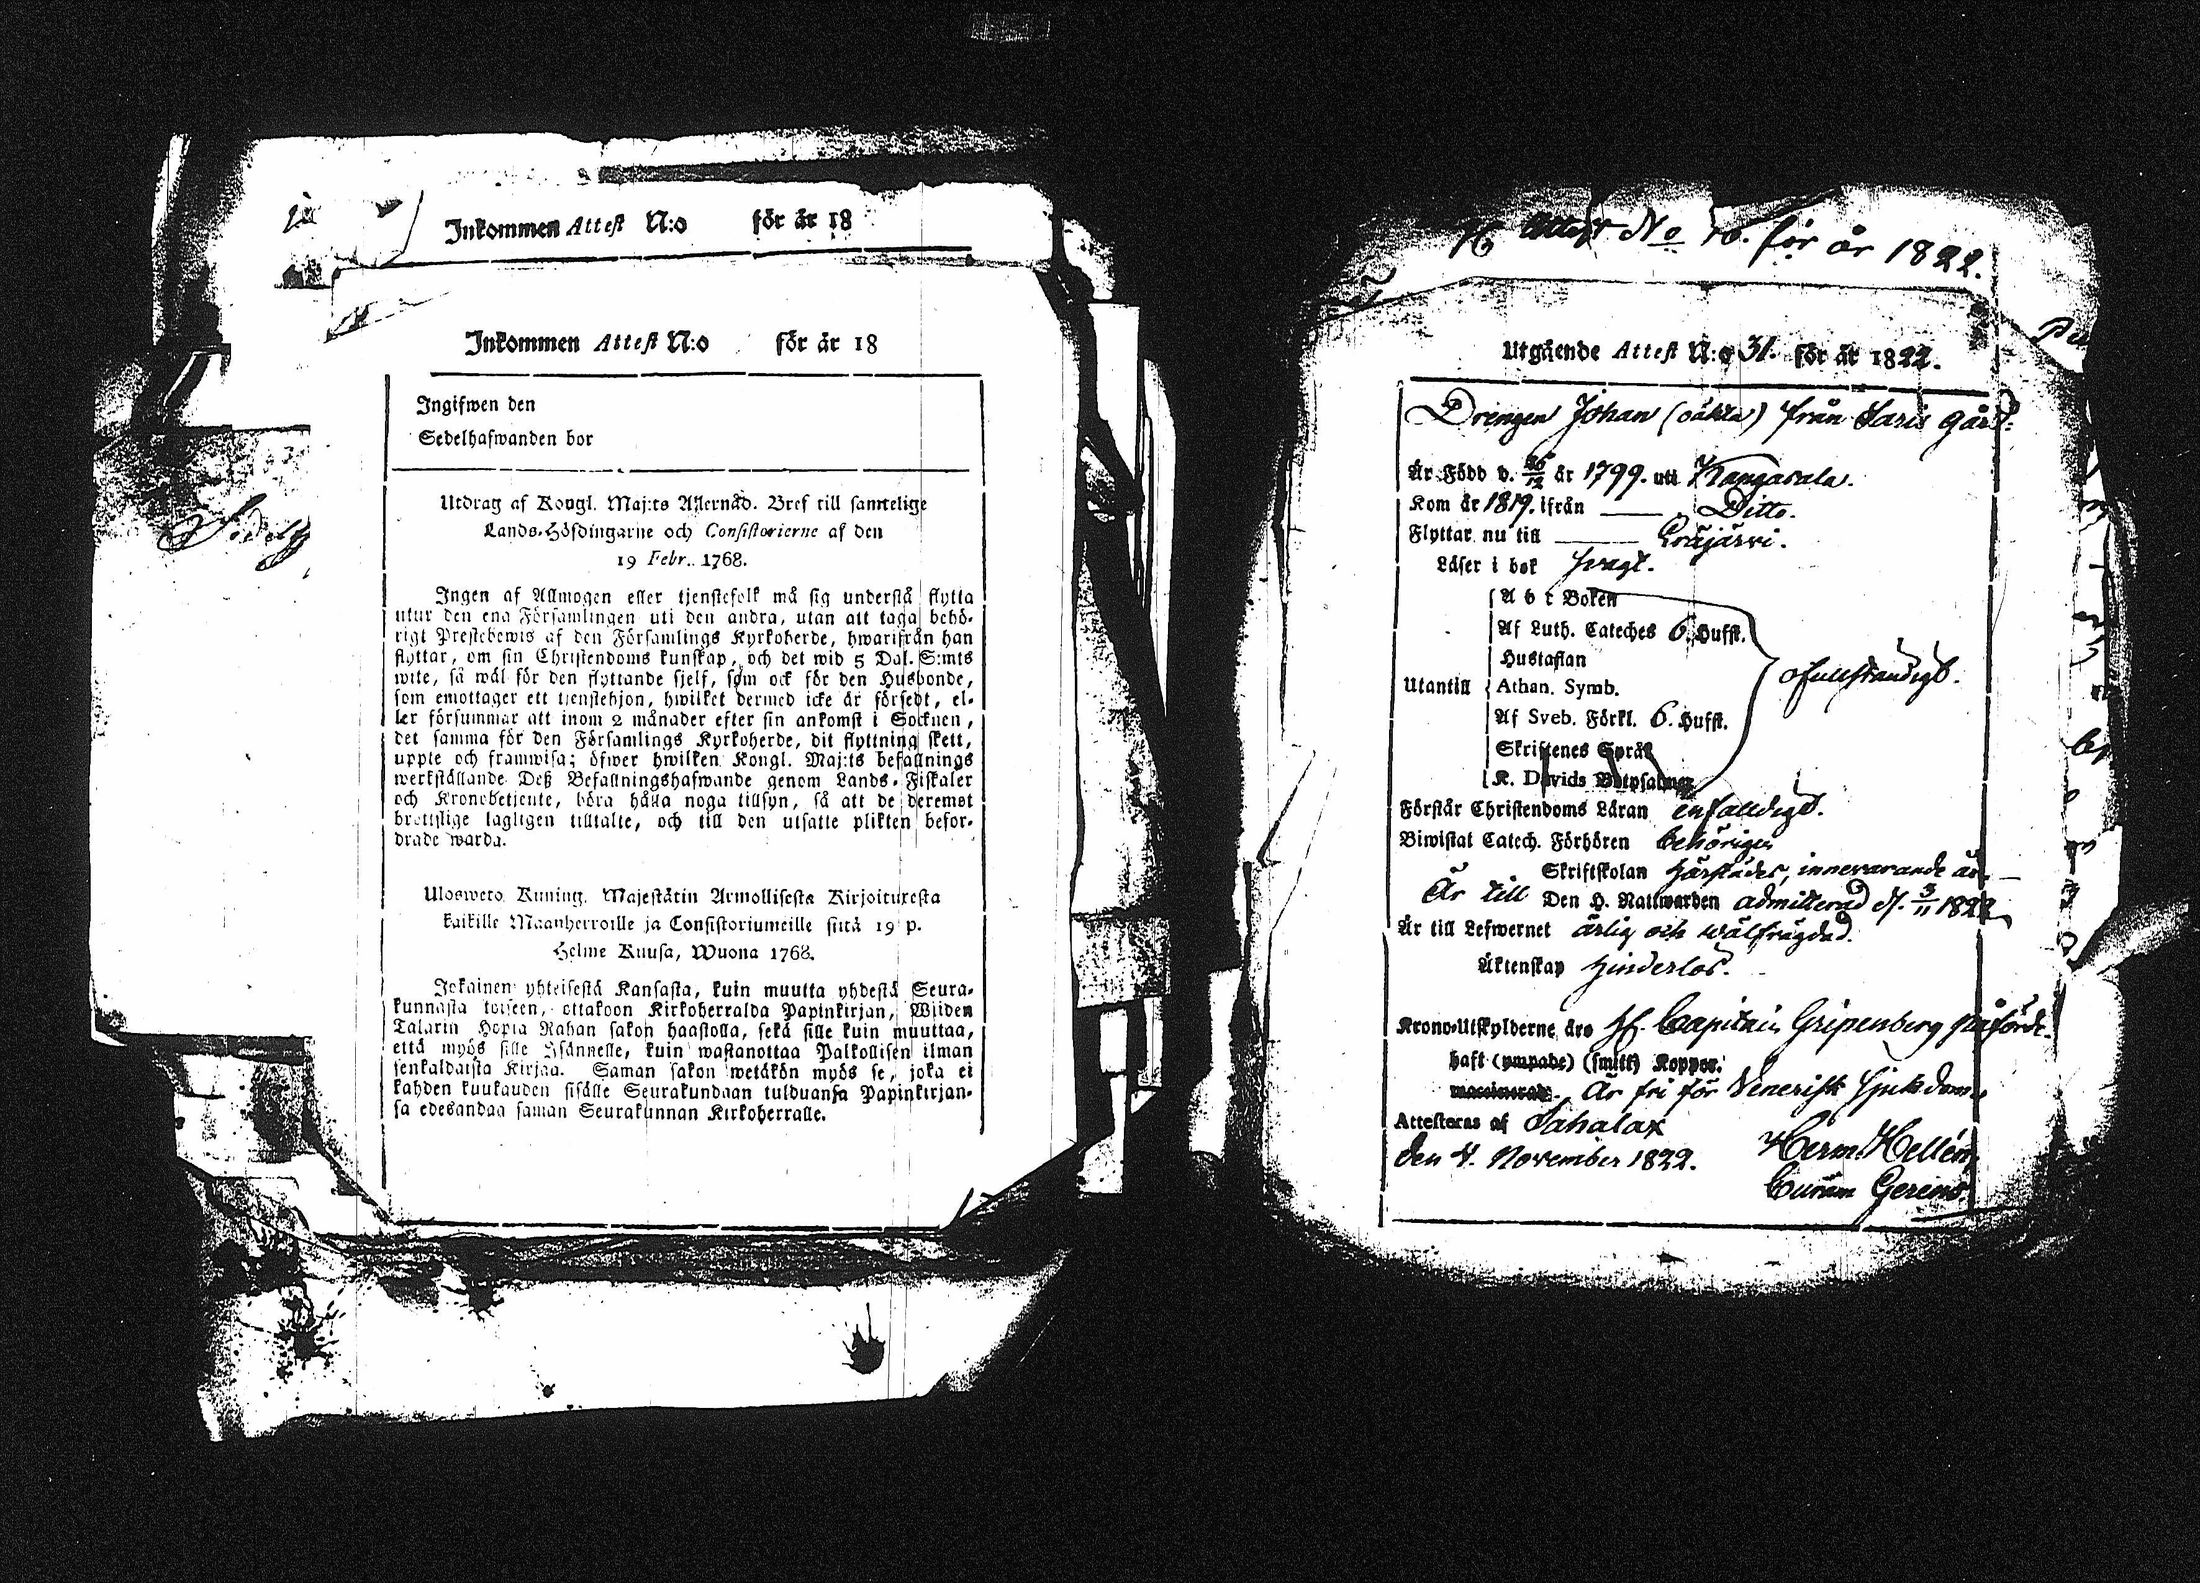 Inkommen Attest N:o för år 18
Inkommen Attest N:o för år 18
Ingifwen den
Sedelhafwanden bor
Utdrag af Kongl. Maj:ts Allernåd. Bref till samtelige
Lands-Höfdingarne och Consistorierne af den
19 Febr. 1768.
Ingen af Allmogen eller tjenstefolk må sig understå flytta
utur den ena Församlingen uti den andra, utan att taga behö-
rigt Prestebewis af den Församlings Kyrkoherde, hwarifrån han
flyttar, om sin Christendoms kunskap, och det wid 5 Dal. S:mts
wite, så wäl för den flyttande sjelf, som ock för den Husbonde,
som emottager ett tjenstehjon, hwilket dermed icke är försedt, el-
ler försummar att inom 2 månader efter sin ankomst i Socknen,
det samma för den Församlings Kyrkoherde, dit flyttning skett,
uppte och framwisa; öfwer hwilken Kongl. Maj:ts befallnings
werkställande Deß Befallningshafwande genom Lands-Fiskaler
och Kronobetjente, böra hålla noga tillsyn, så att de deremot
brottslige lagligen tilltalte, och till den utsatte plikten befor-
drade warda.
Ulosweto Kuning. Majestätin Armollisesta Kirjoituxesta
kaikille Maanherroille ja Consistoriumeille siitä 19 p.
Helme Kuusa, Wuona 1768.
Jokainen yhteisestä Kansasta, kuin muutta yhdestä Seura-
kunnasta toiseen, ottakoon Kirkoherralda Papinkirjan, Wiiden
Talarin Hopia Rahan sakon haastolla, sekä sille kuin muuttaa,
että myös sille Isännelle, kuin wastanottaa Palkollisen ilman
senkaldaista Kirjaa. Saman sakon wetäkön myös se, joka ei
kahden kuukauden sisälle Seurakundaan tulduansa Papinkirjan-
sa edesandaa saman Seurakunnan Kirkoherralle.
Attest No 76. för år 1822.
Utgående Attest N:o 31. för år 1822.
Drengen Johan (oäkta) från Saris gård.
Är Född d. 26/12 år 1799. uti Kangasala.
Kom år 1819. ifrån Ditto.
Flyttar nu till Eräjärvi.
Läser i bok svagt.
A b c Boken
Af Luth. Cateches 6. Hufst.
Hustaflan
Utantill Athan. Symb. ofullständigt.
Af Sveb. Förkl. 6. Hufst.
Skriftenes Språk
K. Davids Botpsalmer
Förstår Christendoms Läran enfaldigt.
Biwistat Catech. Förhören behörigen
Skriftskolan härstädes, innevarande år
Är till Den H. Nattwarden admitterad d. 3/11 1822
Är till Lefwernet ärlig och wälfrägdad.
Äktenskap hinderlös.
Krono-Utskylderne äro Hr. Capitain Gripenberg påförde.
haft (ympade) (smitt) Koppor.
Är fri för Venerisk Sjukdom.
Attesteras af Sahalax
den 4. November 1822. Herm. Hellén
Curam Gerens.